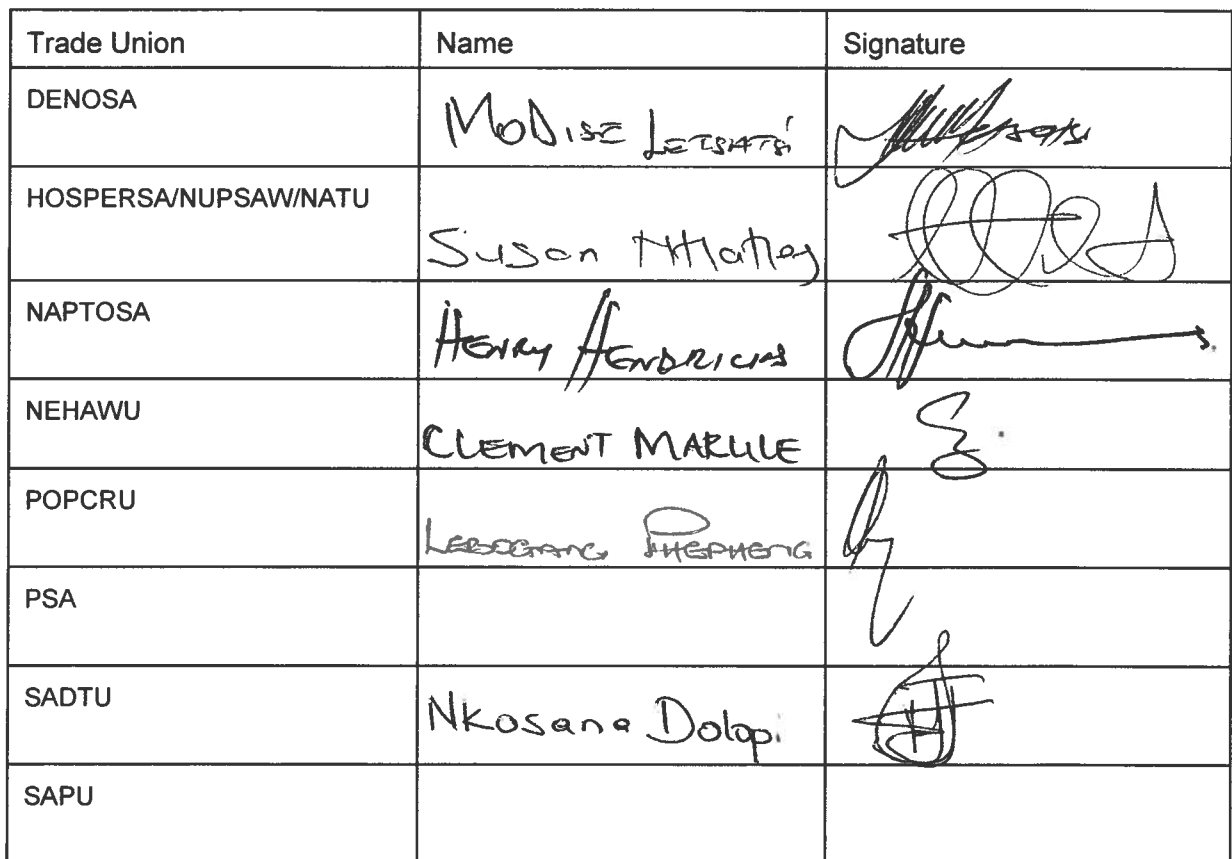 Trade Union Name Signature
DENOSA MODISE LETSHATSI
HOSPERSA/NUPSAW/NATU Susan
NAPTOSA HENRY HENDRICKS
NEHAWU CLEMENT MARULE
POPCRU LEBOGANG PHEPHENG
PSA
SADTU Nkosana Dolopi
SAPU